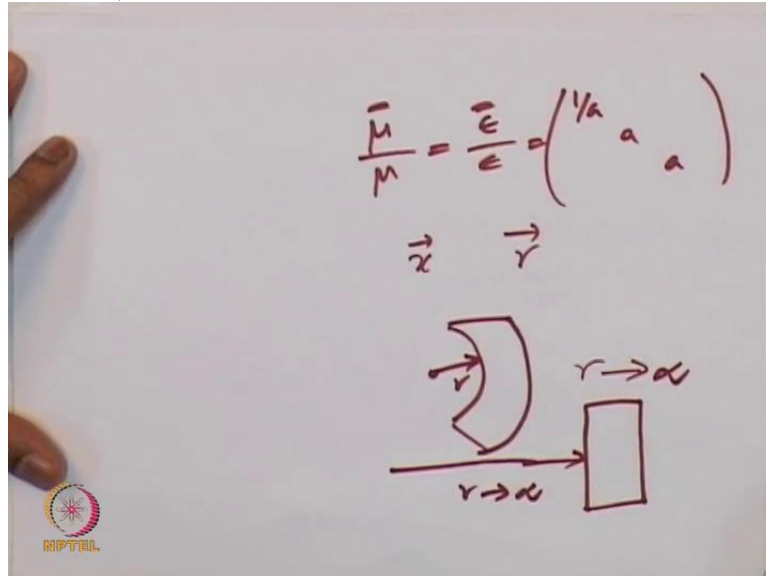 μ̄/μ = ε̄/ε = (1/a a a)
x⃗ r⃗
r
r → ∝
r → ∝
NPTEL